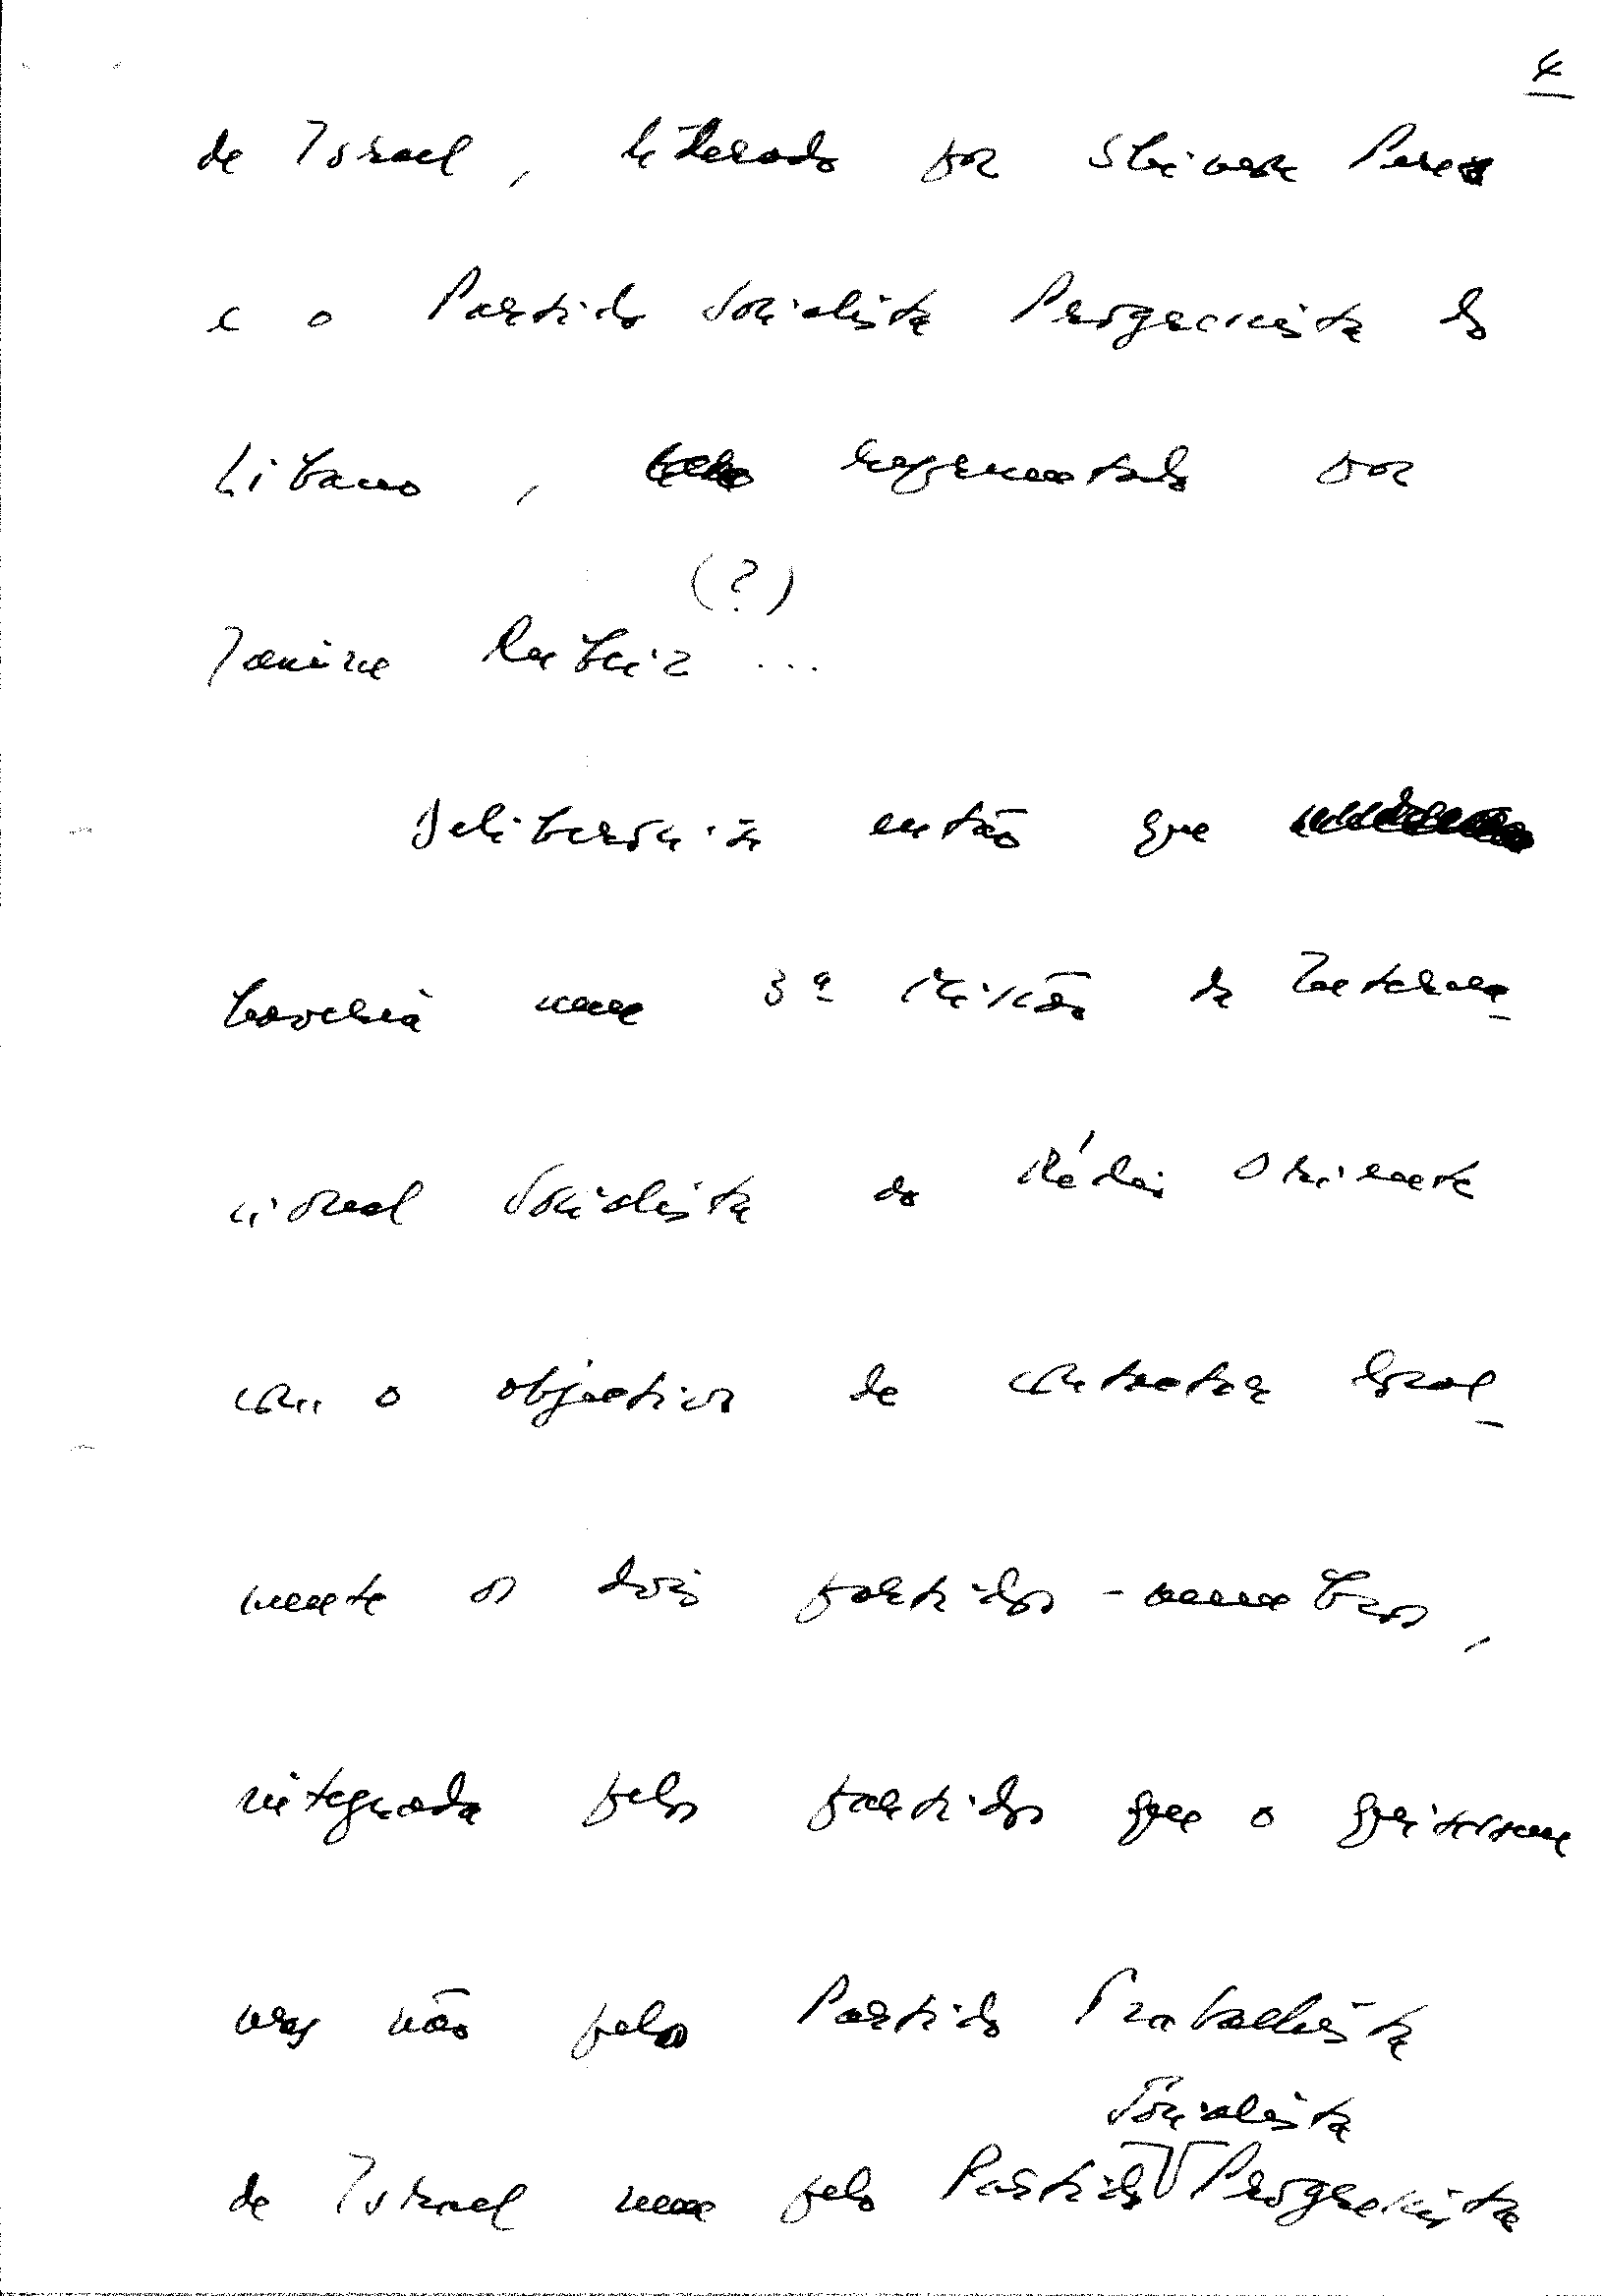 4
de Israel, liderado por Shimon Peres
e o Partido Socialista Progressista do
Líbano, representado por
(?)
Deliberou-se então que
haveria uma 3ª Missão da Interna-
cional Socialista ao Médio Oriente
com o objectivo de contactar igual-
mente os dois partidos-membros,
integrada pelos partidos que o quisessem
mas não pelo Partido Trabalhista
Socialista
de Israel nem pelo Partido Progressista